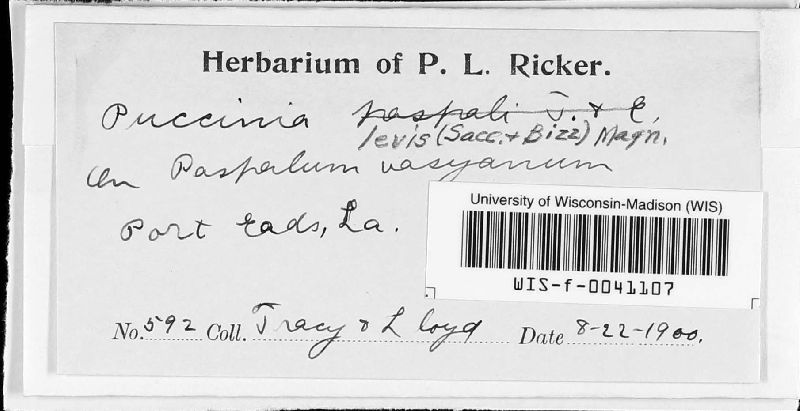 Herbarium of P. L. Ricker.
Puccinia paspali T. & E.
levis (Sacc. + Bizz) Magn.
On Paspalum vaseyanum
Port Eads, La.
University of Wisconsin-Madison (WIS)
WIS-f-0041107
No. 592 Coll. Tracy & Lloyd Date 8-22-1900.